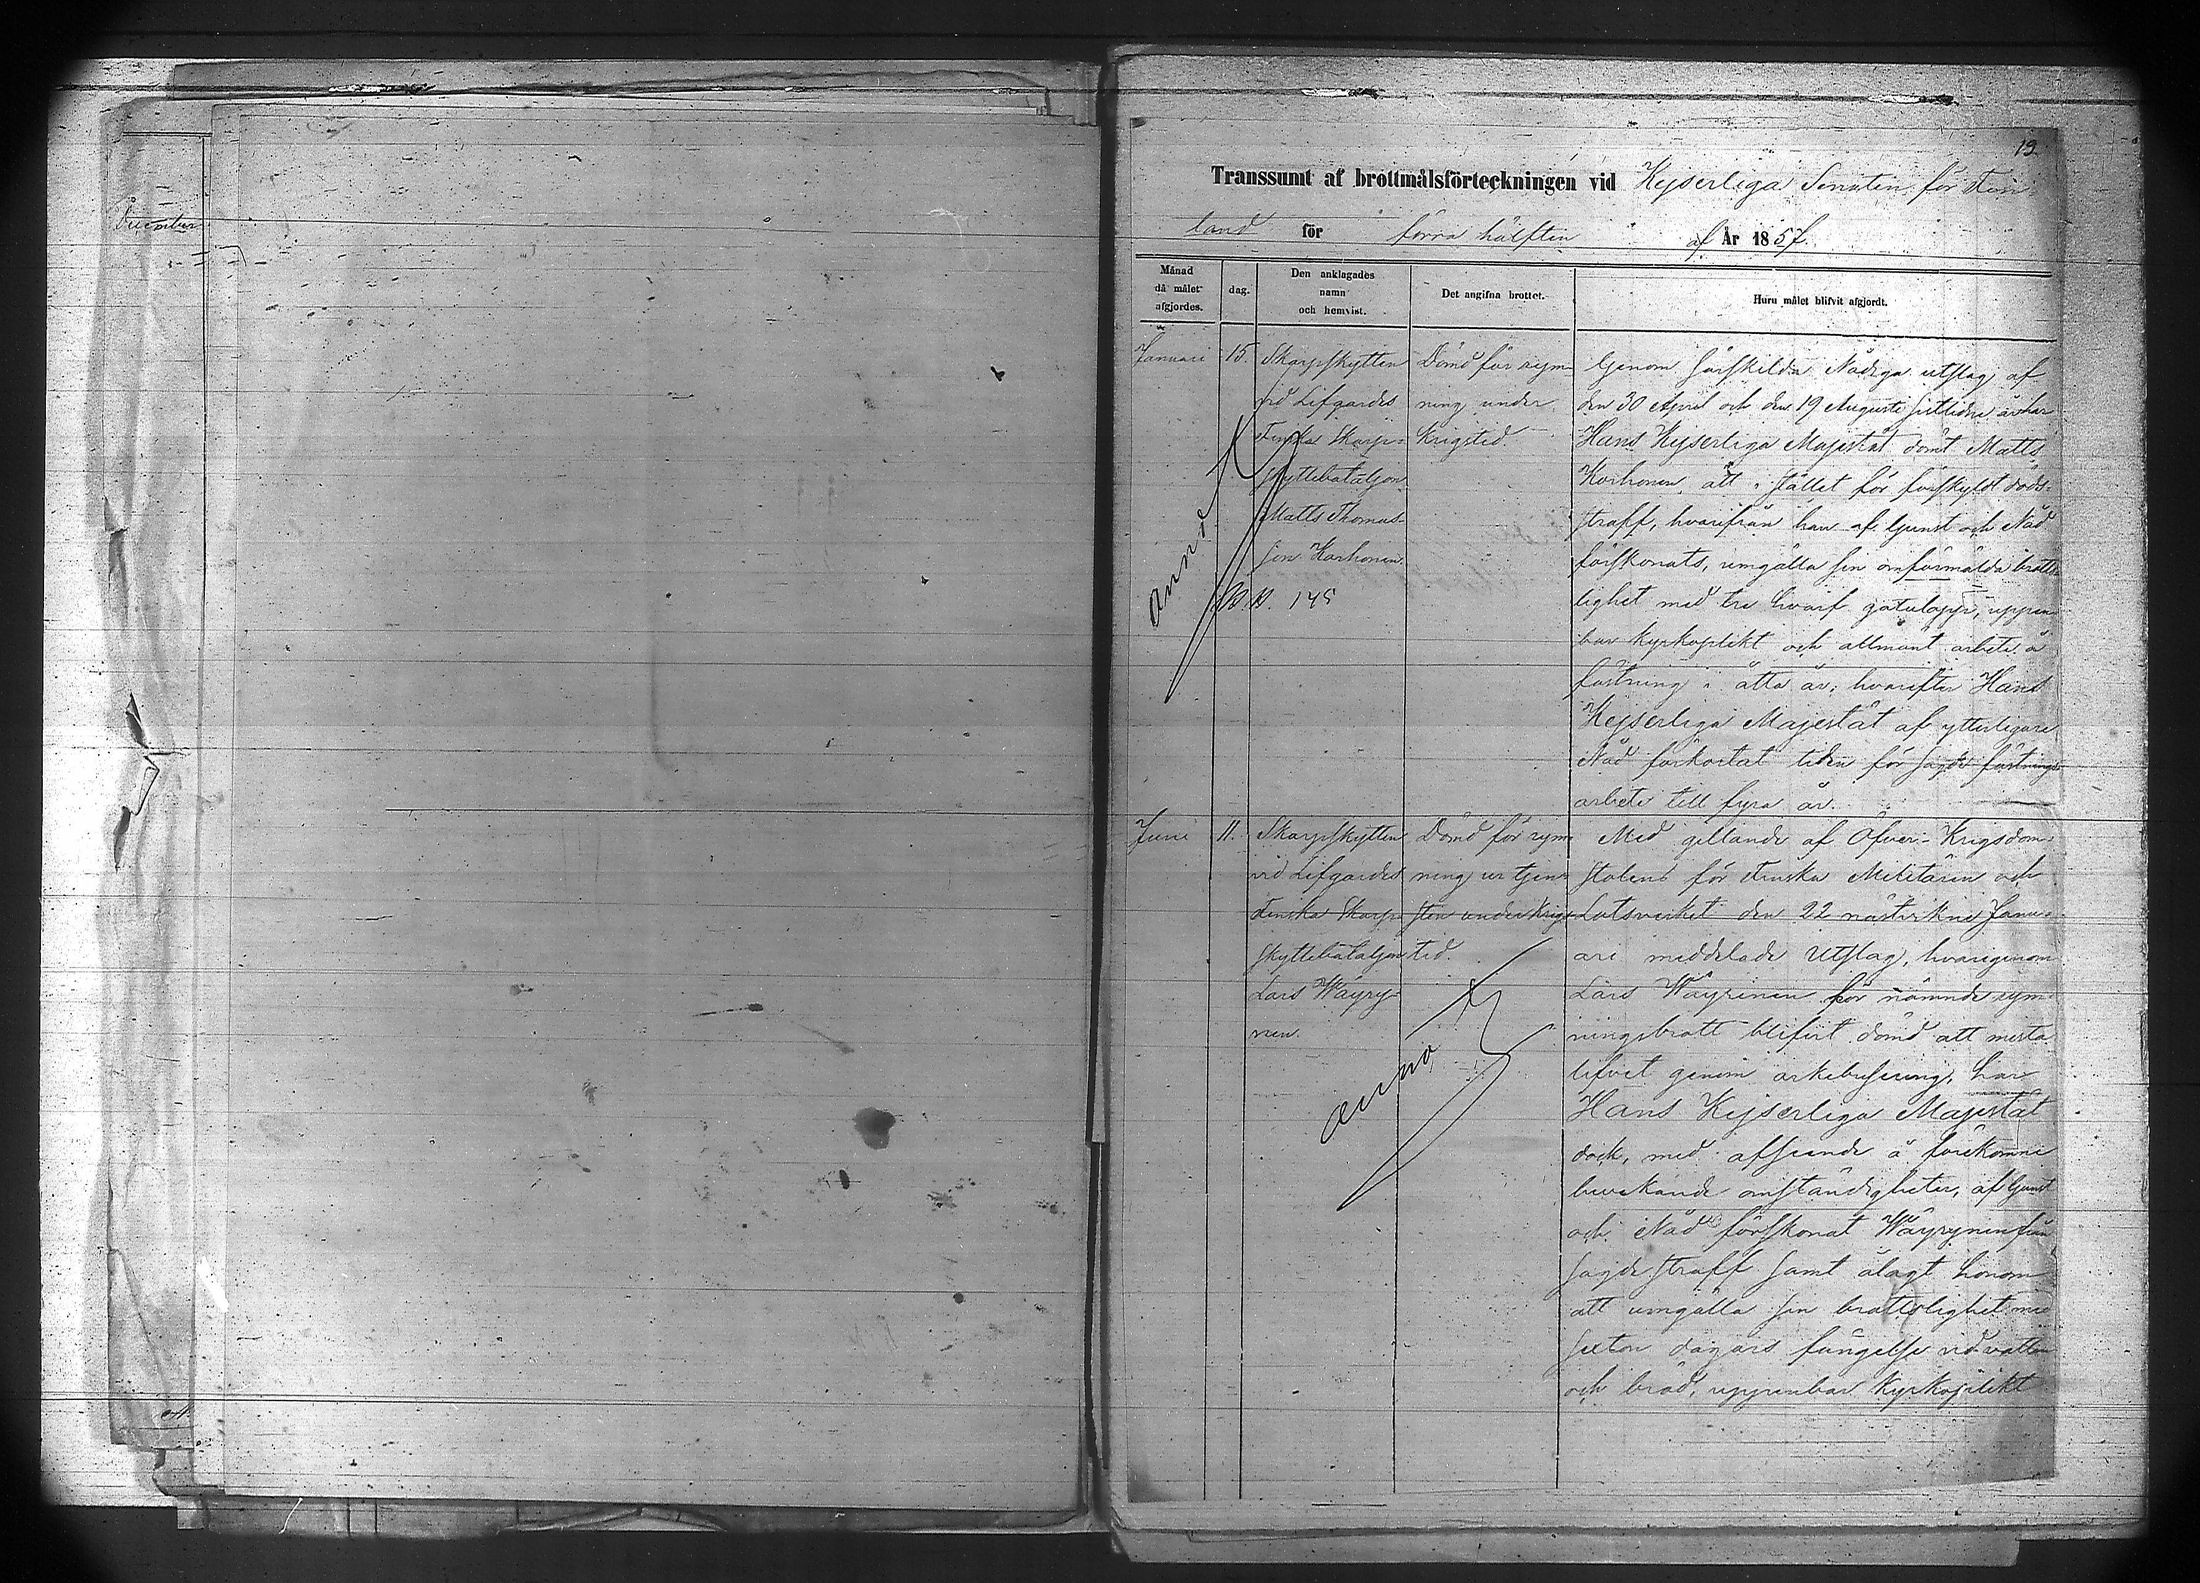 December
19.
Transsumt af brottmålsförteckningen vid Kejserliga Senaten för Fin-
land för förra hälften af År 1857.
Månad
då målet
afgjordes.
dag.
Den anklagades
namn
och hemvist.
Det angifna brottet.
Huru målet blifvit afgjordt.
Januari
15.
Skarpskytten
vid Lifgardes
Finska Skarp-
skyttebataljon
Matts Thomas-
son Korhonen.
N. 145
Dömd för rym-
ning under
Krigstid.
Genom särskilda Nådiga utslag af
den 30 April och den 19 Augusti sistlidne år har
Hans Kejserliga Majestät dömt Matts
Korhonen, att i stället för förskyldt döds-
straff, hvarifrån han af Gunst och Nåd
förskonats, umgälla sin omförmälda brotts-
lighet med tre hvarf gatulopp, uppen-
bar kyrkoplikt och allmänt arbete å
fästning i åtta år; hvarefter Hans
Kejserliga Majestät af ytterligare
Nåd förkortat tiden för sagde fästnings-
arbete till fyra år.
Juni
11.
Skarpskytten
vid Lifgardes
Finska Skarp-
skyttebataljon
Lars Wäyry-
nen.
Dömd för rym-
ning ur tjen-
sten under Krigs-
tid.
Med gillande af Öfver-Krigsdom-
stolens för Finska Militären och
Lotsverket den 22 nästvikne Janu-
ari meddelade Utslag, hvarigenom
Lars Wäyrinen för nämnde rym-
ningsbrott blifvit dömd att mista
lifvet genom arkebusering, har
Hans Kejserliga Majestät
dock, med afseende å förekomne
bevekande omständigheter, af Gunst
och Nåd förskonat Wäyrynen från
sagde straff samt ålagt honom
att umgälla sin brottslighet med
sexton dagars fängelse vid vatten
och bröd, uppenbar Kyrkoplikt